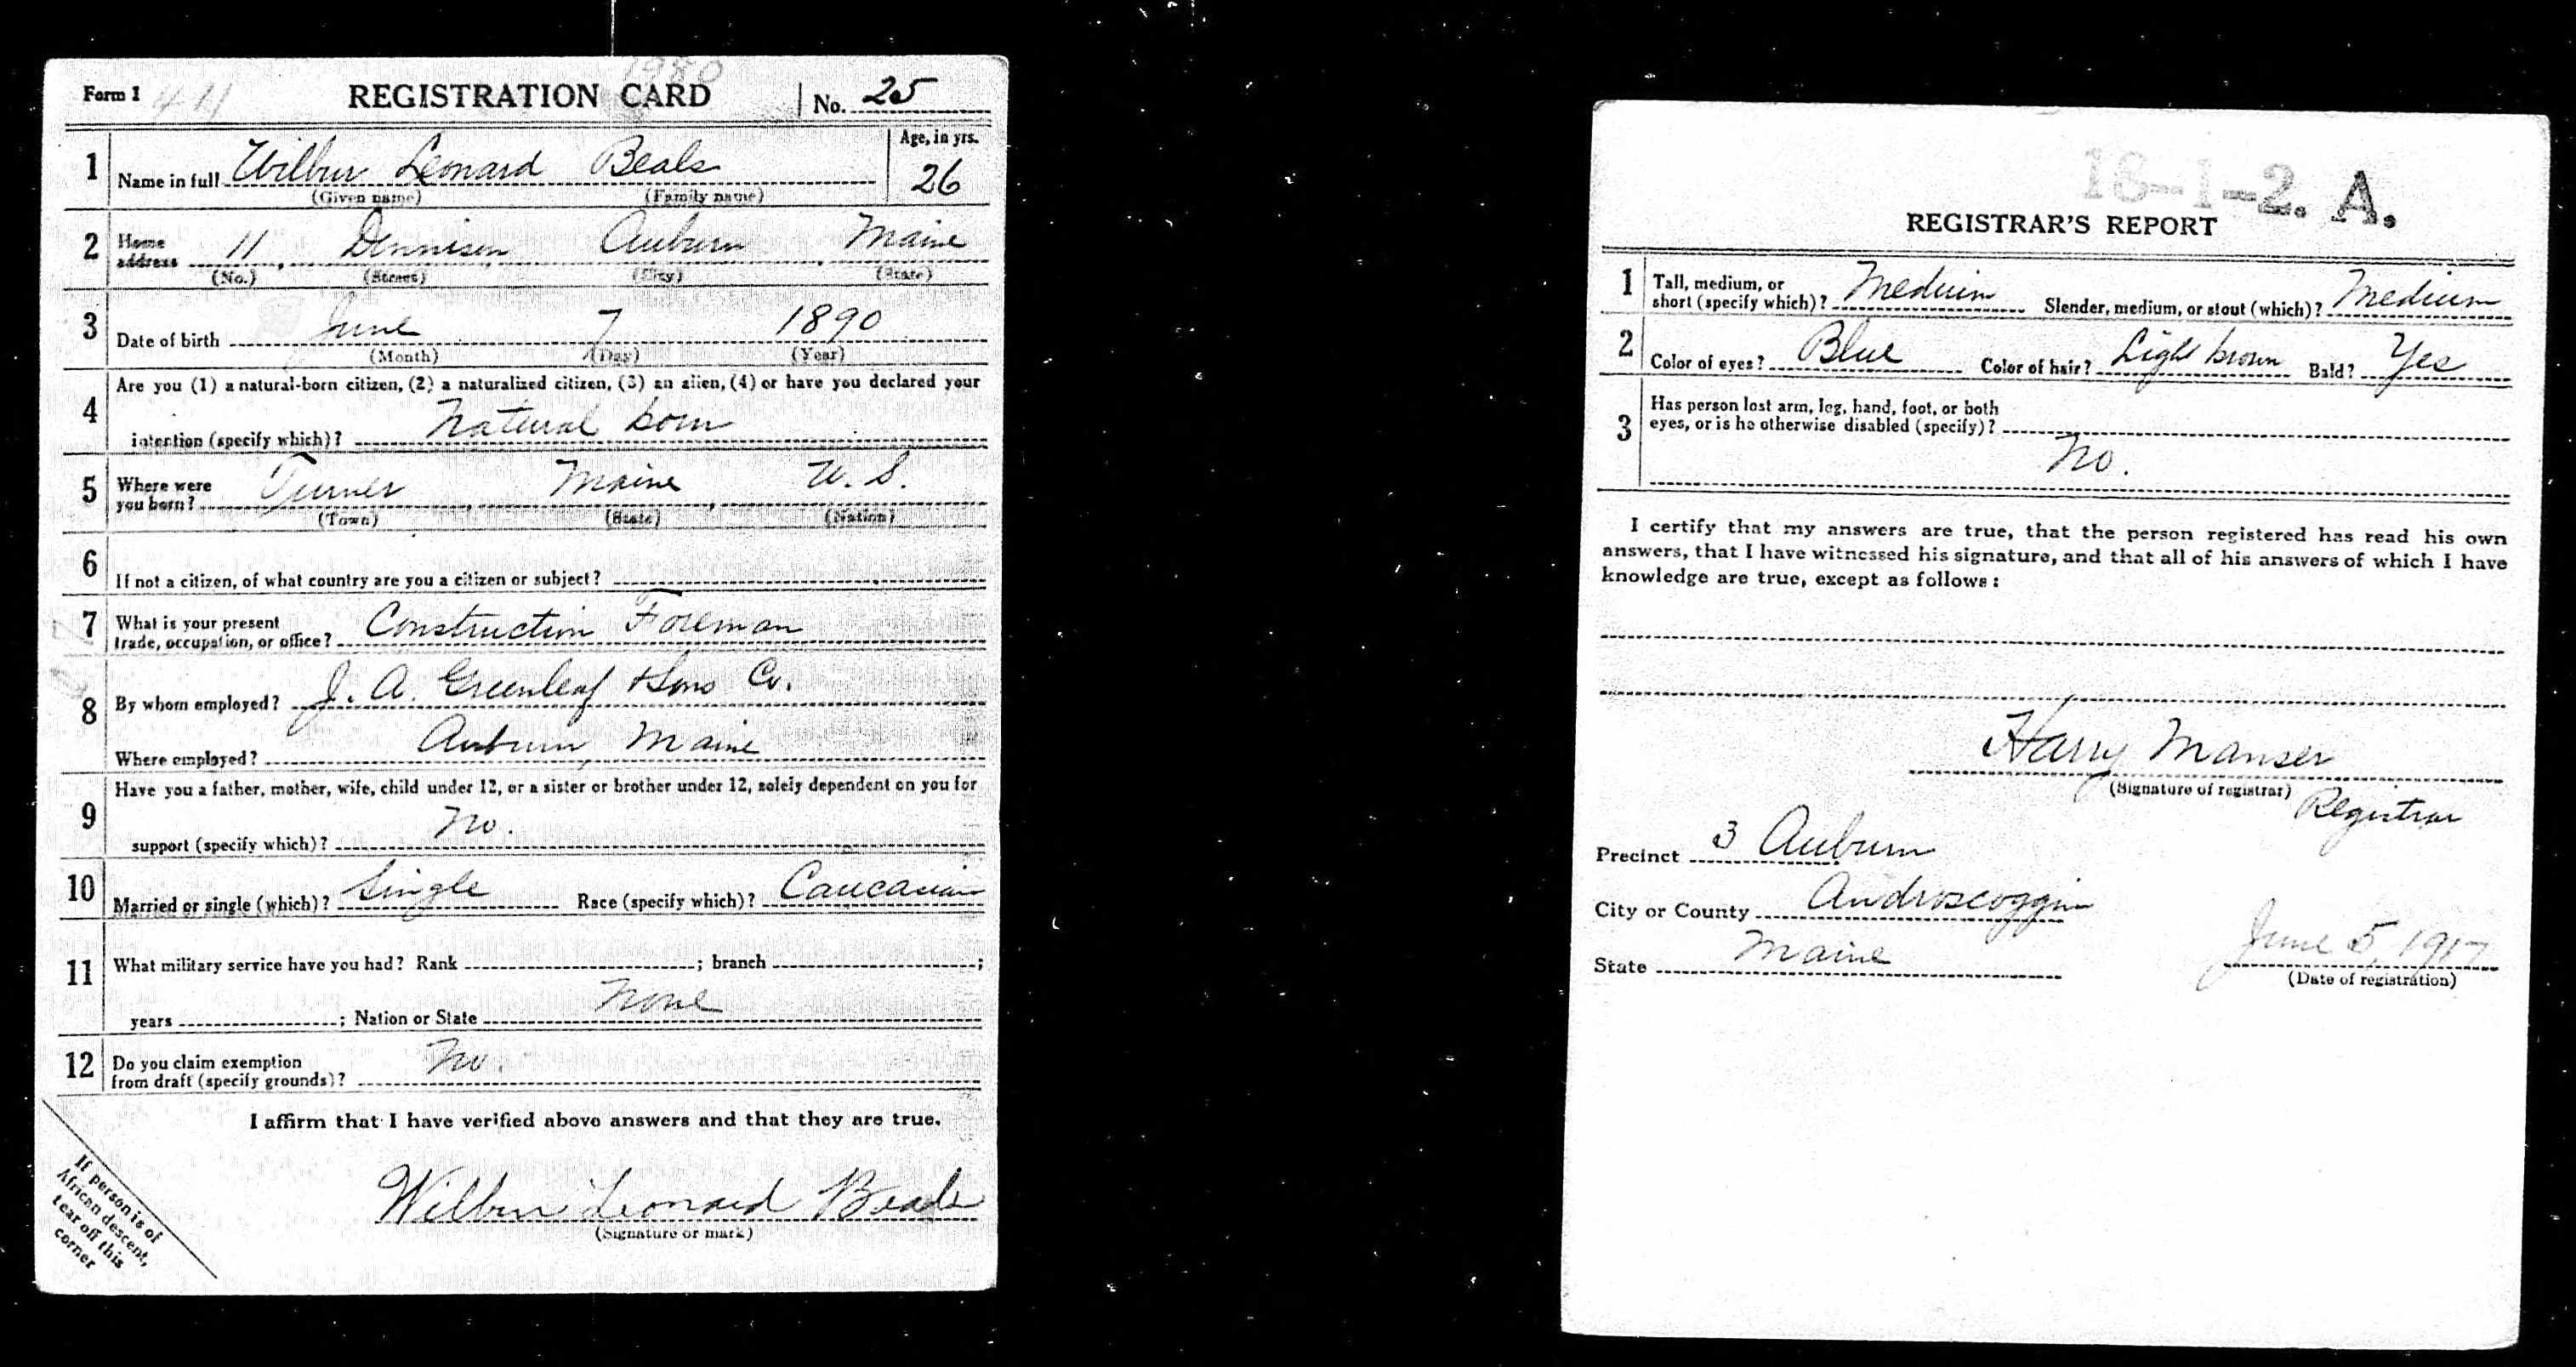 1980
Form 1 REGISTRATION CARD No. 25
1 Name in full Wilbur Leonard Beals Age, in yrs. 26
(Given name) (Family name)
2 Home address 11 Dennison Auburn Maine
(No.) (Street) (City) (State)
3 Date of birth June 7 1890
(Month) (Day) (Year)
4 Are you (1) a natural-born citizen, (2) a naturalized citizen, (3) an alien, (4) or have you declared your
intention (specify which)? Natural born
5 Where were you born? Turner, Maine, U. S.
(Town) (State) (Nation)
6 If not a citizen, of what country are you a citizen or subject?
7 What is your present
trade, occupation, or office? Construction Foreman
8 By whom employed? J. A. Greenleaf & Sons Co.
Where employed? Auburn, Maine
9 Have you a father, mother, wife, child under 12, or a sister or brother under 12, solely dependent on you for
support (specify which)? No.
10 Married or single (which)? Single Race (specify which)? Caucasian
11 What military service have you had? Rank ; branch ;
years ; Nation or State None
12 Do you claim exemption
from draft (specify grounds)? No.
I affirm that I have verified above answers and that they are true.
Wilbur Leonard Beals
(Signature or mark)
If person is of
African descent,
tear off this
corner
18-1-2. A.
REGISTRAR'S REPORT
1 Tall, medium, or
short (specify which)? Medium Slender, medium, or stout (which)? Medium
2 Color of eyes? Blue Color of hair? Light brown Bald? Yes
3 Has person lost arm, leg, hand, foot, or both
eyes, or is he otherwise disabled (specify)?
No.
I certify that my answers are true, that the person registered has read his own
answers, that I have witnessed his signature, and that all of his answers of which I have
knowledge are true, except as follows:
Harry Manser
(Signature of registrar)
Registrar
Precinct 3 Auburn
City or County Androscoggin
State Maine
June 5, 1917
(Date of registration)